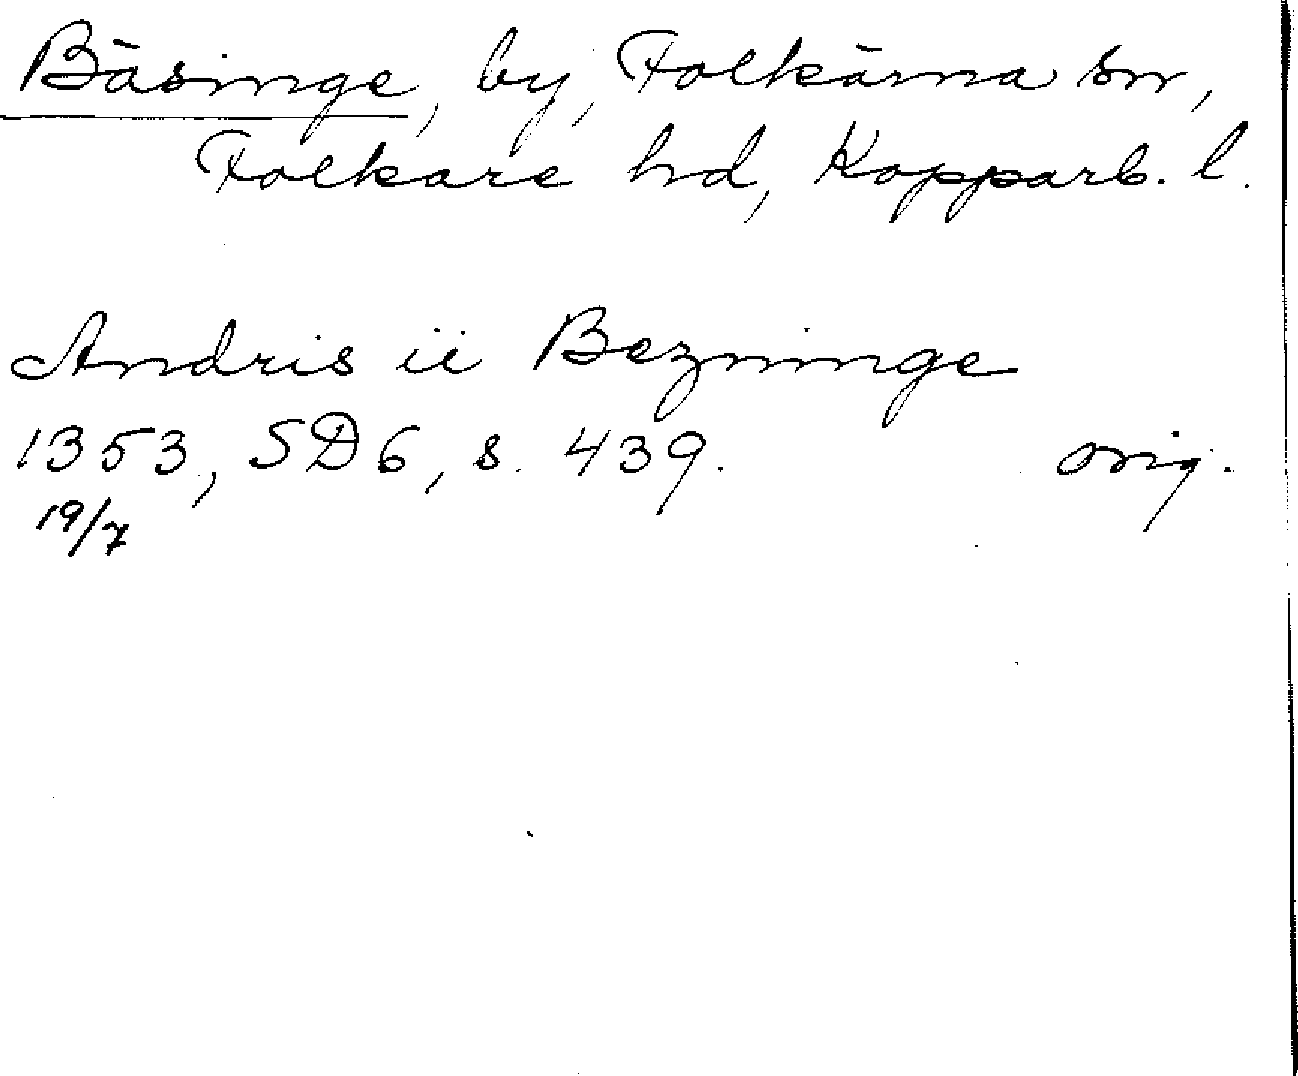 Bäsinge, by, Folkärna sn,
Folkare hd, Kopparb. l.
Andris ii Bezninge
1353, SD6, s. 439. orig.
19/7